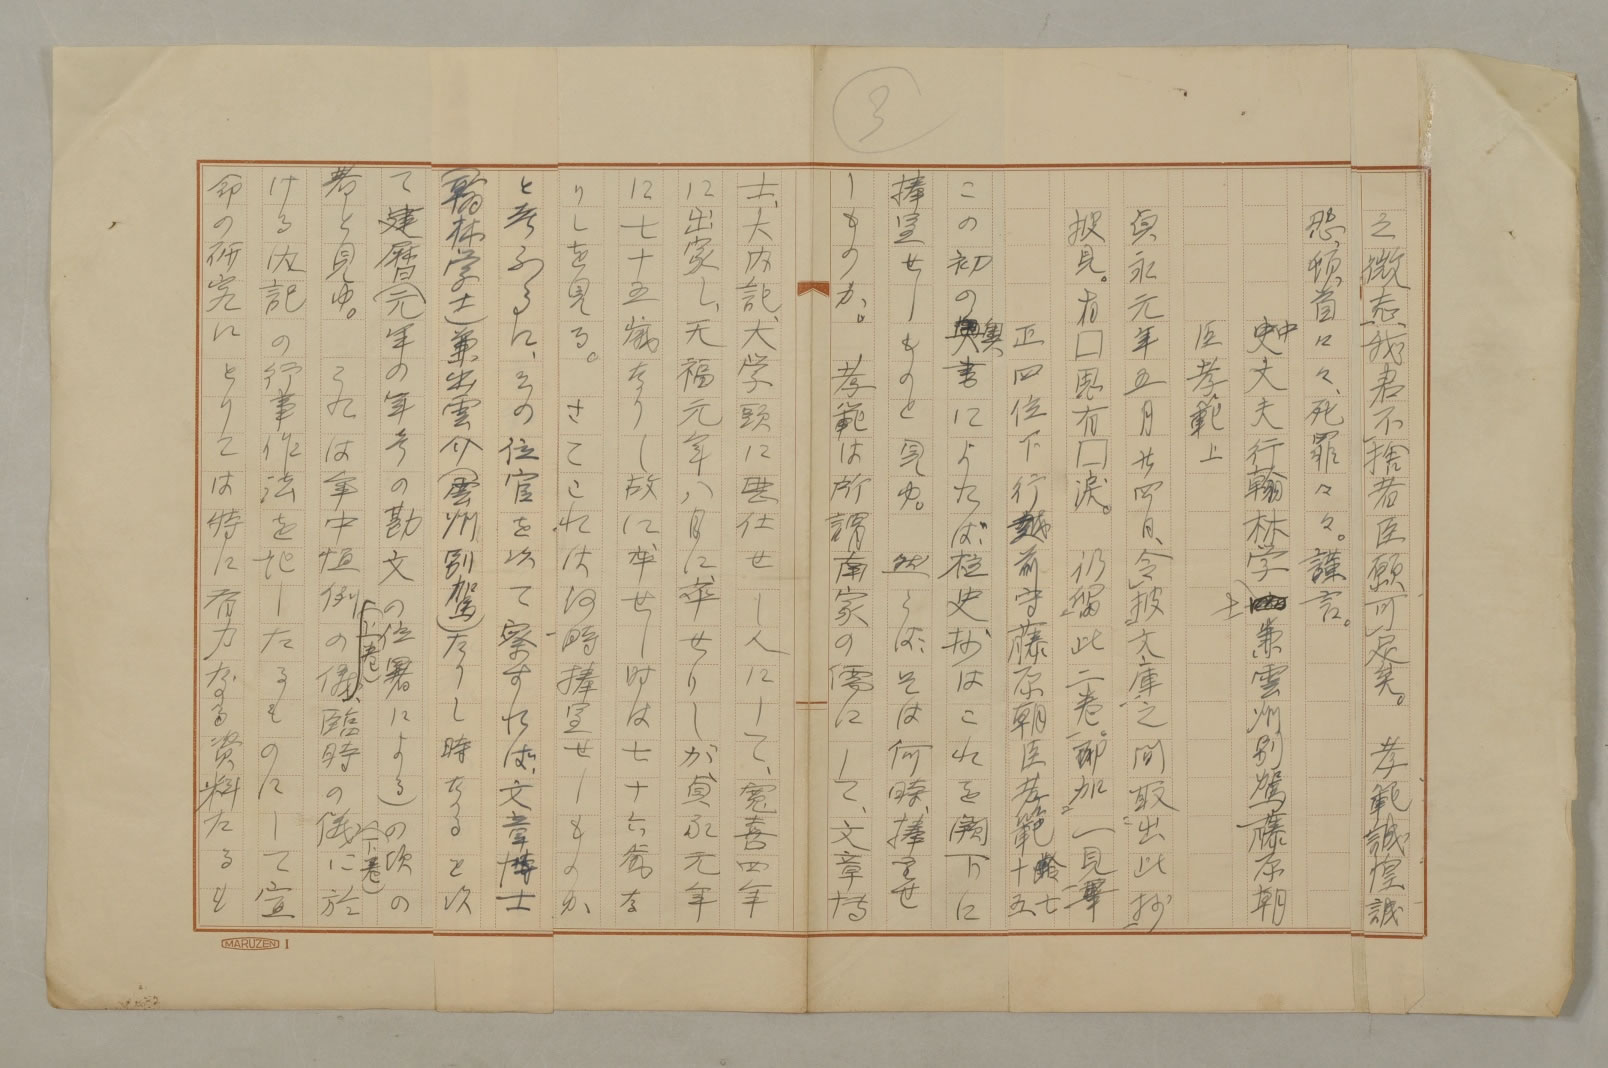 3
之微志、我君不捨者臣願可足矣。 孝範誠惶誠
恐、頓首々々、死罪々々。謹言。
中史大夫行翰林学士兼雲州別駕藤原朝
臣孝範上
貞永元年五月廿四日、令披文庫之間取出此抄
披見。有口 有口涙。 仍 此二巻。聊加一見畢
正四位下行越前守藤原朝臣孝範齢七十五
この初の奥書によれば、柱史抄はこれを闕下に
捧呈せしものと見ゆ。 然らば、そは何時、捧呈せ
しものか。 孝範は所謂南家の儒にして、文章博
士、大内記、大学頭に歴仕せし人にして、寛喜四年
に出家し、天福元年八月に卒せりしが、貞永元年
に七十五歳なりし故に卒せし時は七十六歳な
りしを見る。 さてこれは何時捧呈せしものか
と考ふるに、その位官を以て察すれば、文章博士
(翰林学士)兼出雲介(雲州別駕)たりし時なると以
て建暦(元)年の年号の勘文の位署による)の頃の
者と見ゆ。 これは年中恒例の儀(上巻)、臨時の儀(下巻)に於
ける内記の行事作法を記したるものにして宣
命の研究にとりては特に有力なる資料たるも
MARUZEN 1